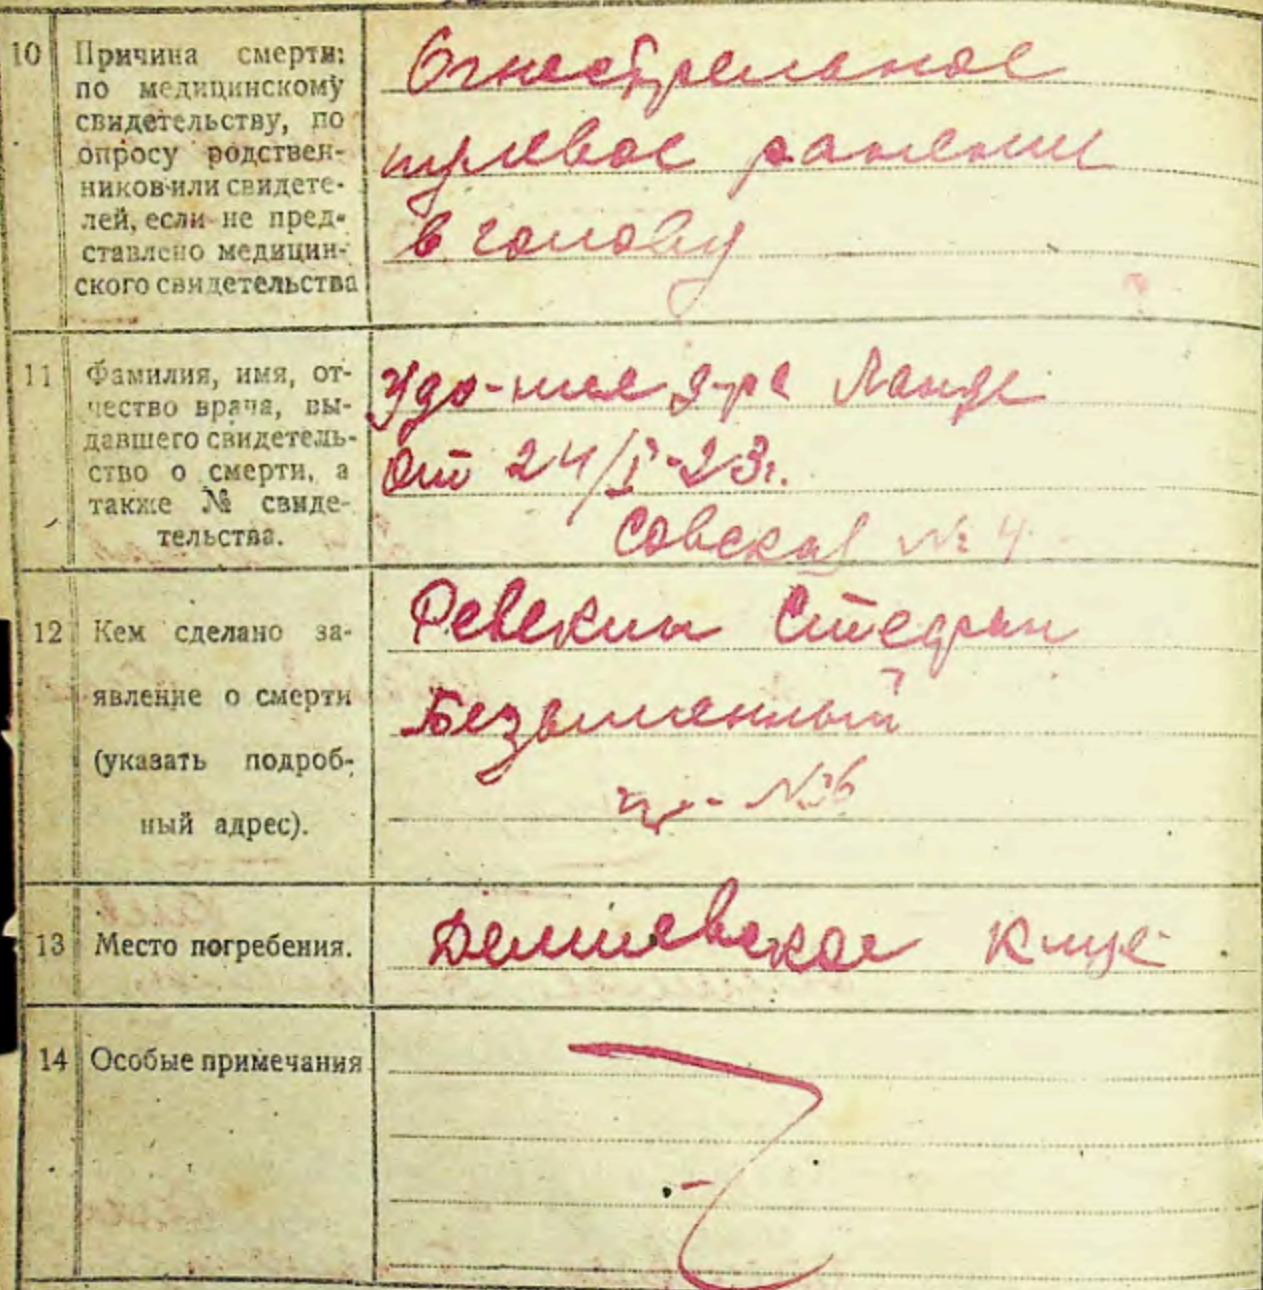 10 Причина смерти:
по медицинскому
свидетельству, по
опросу родствен-
ников или свидете-
лей, если не пред-
ставлено медицин-
ского свидетельства
Огнестрельное
пулевое ранение
в голову
11 Фамилия, имя, от-
чество врача, вы-
давшего свидетель-
ство о смерти, а
также № свиде-
тельства.
Удо-ние д-ра Ланде
От 24/I-23г.
Совская № 4
12 Кем сделано за-
явление о смерти
(указать подроб-
ный адрес).
Ревекин
№ 6
13 Место погребения.
Демиевское
14 Особые примечания